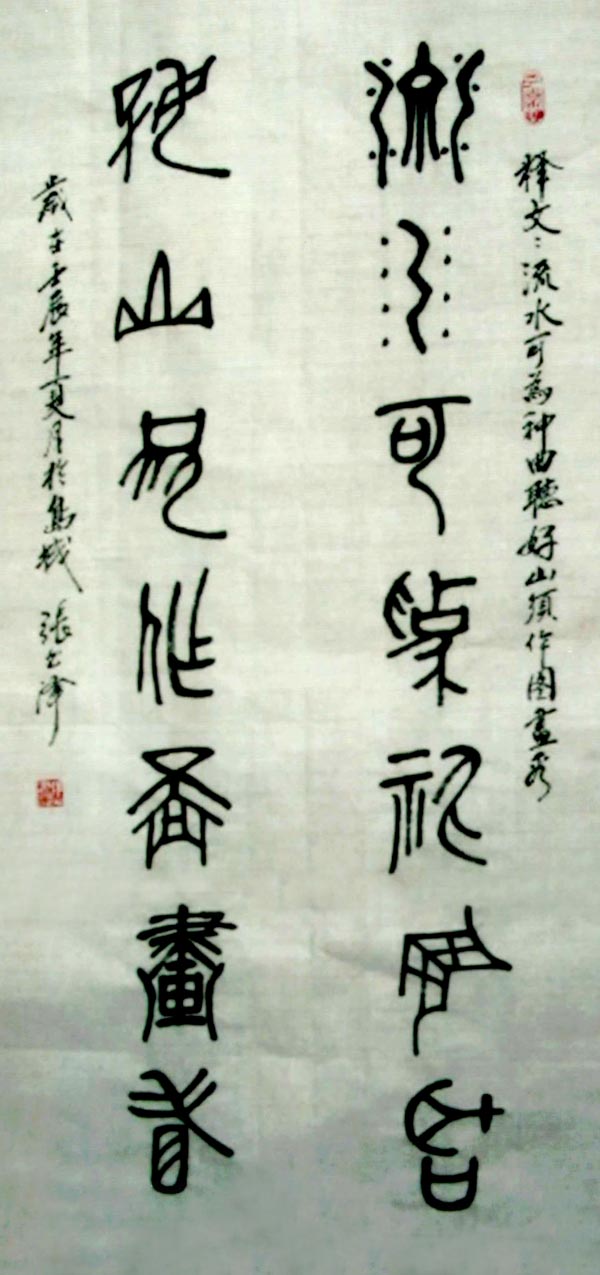 释文：流水可為神曲聽好山須作图畫看
流水可為神曲聽
好山須作圖畫看
歲在壬辰年夏月於島城 張